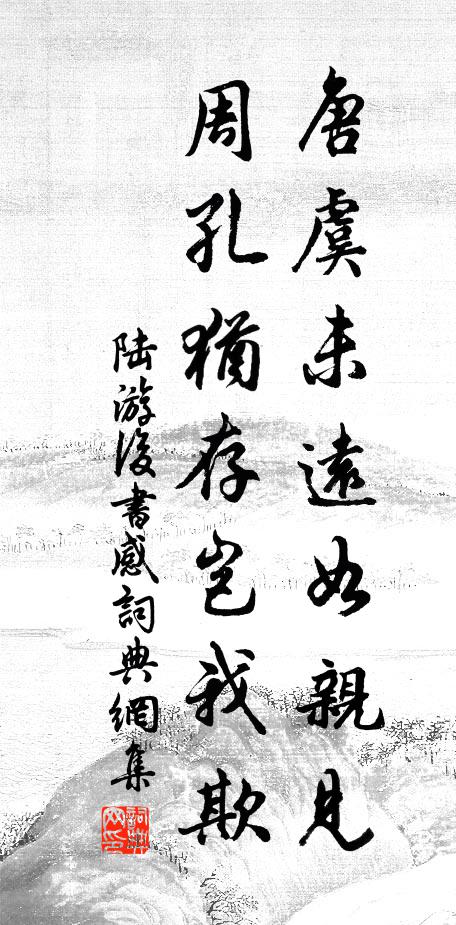 唐虞未遠如親見
周孔猶存豈我欺
陸游後書感詞典網集
詞典网印